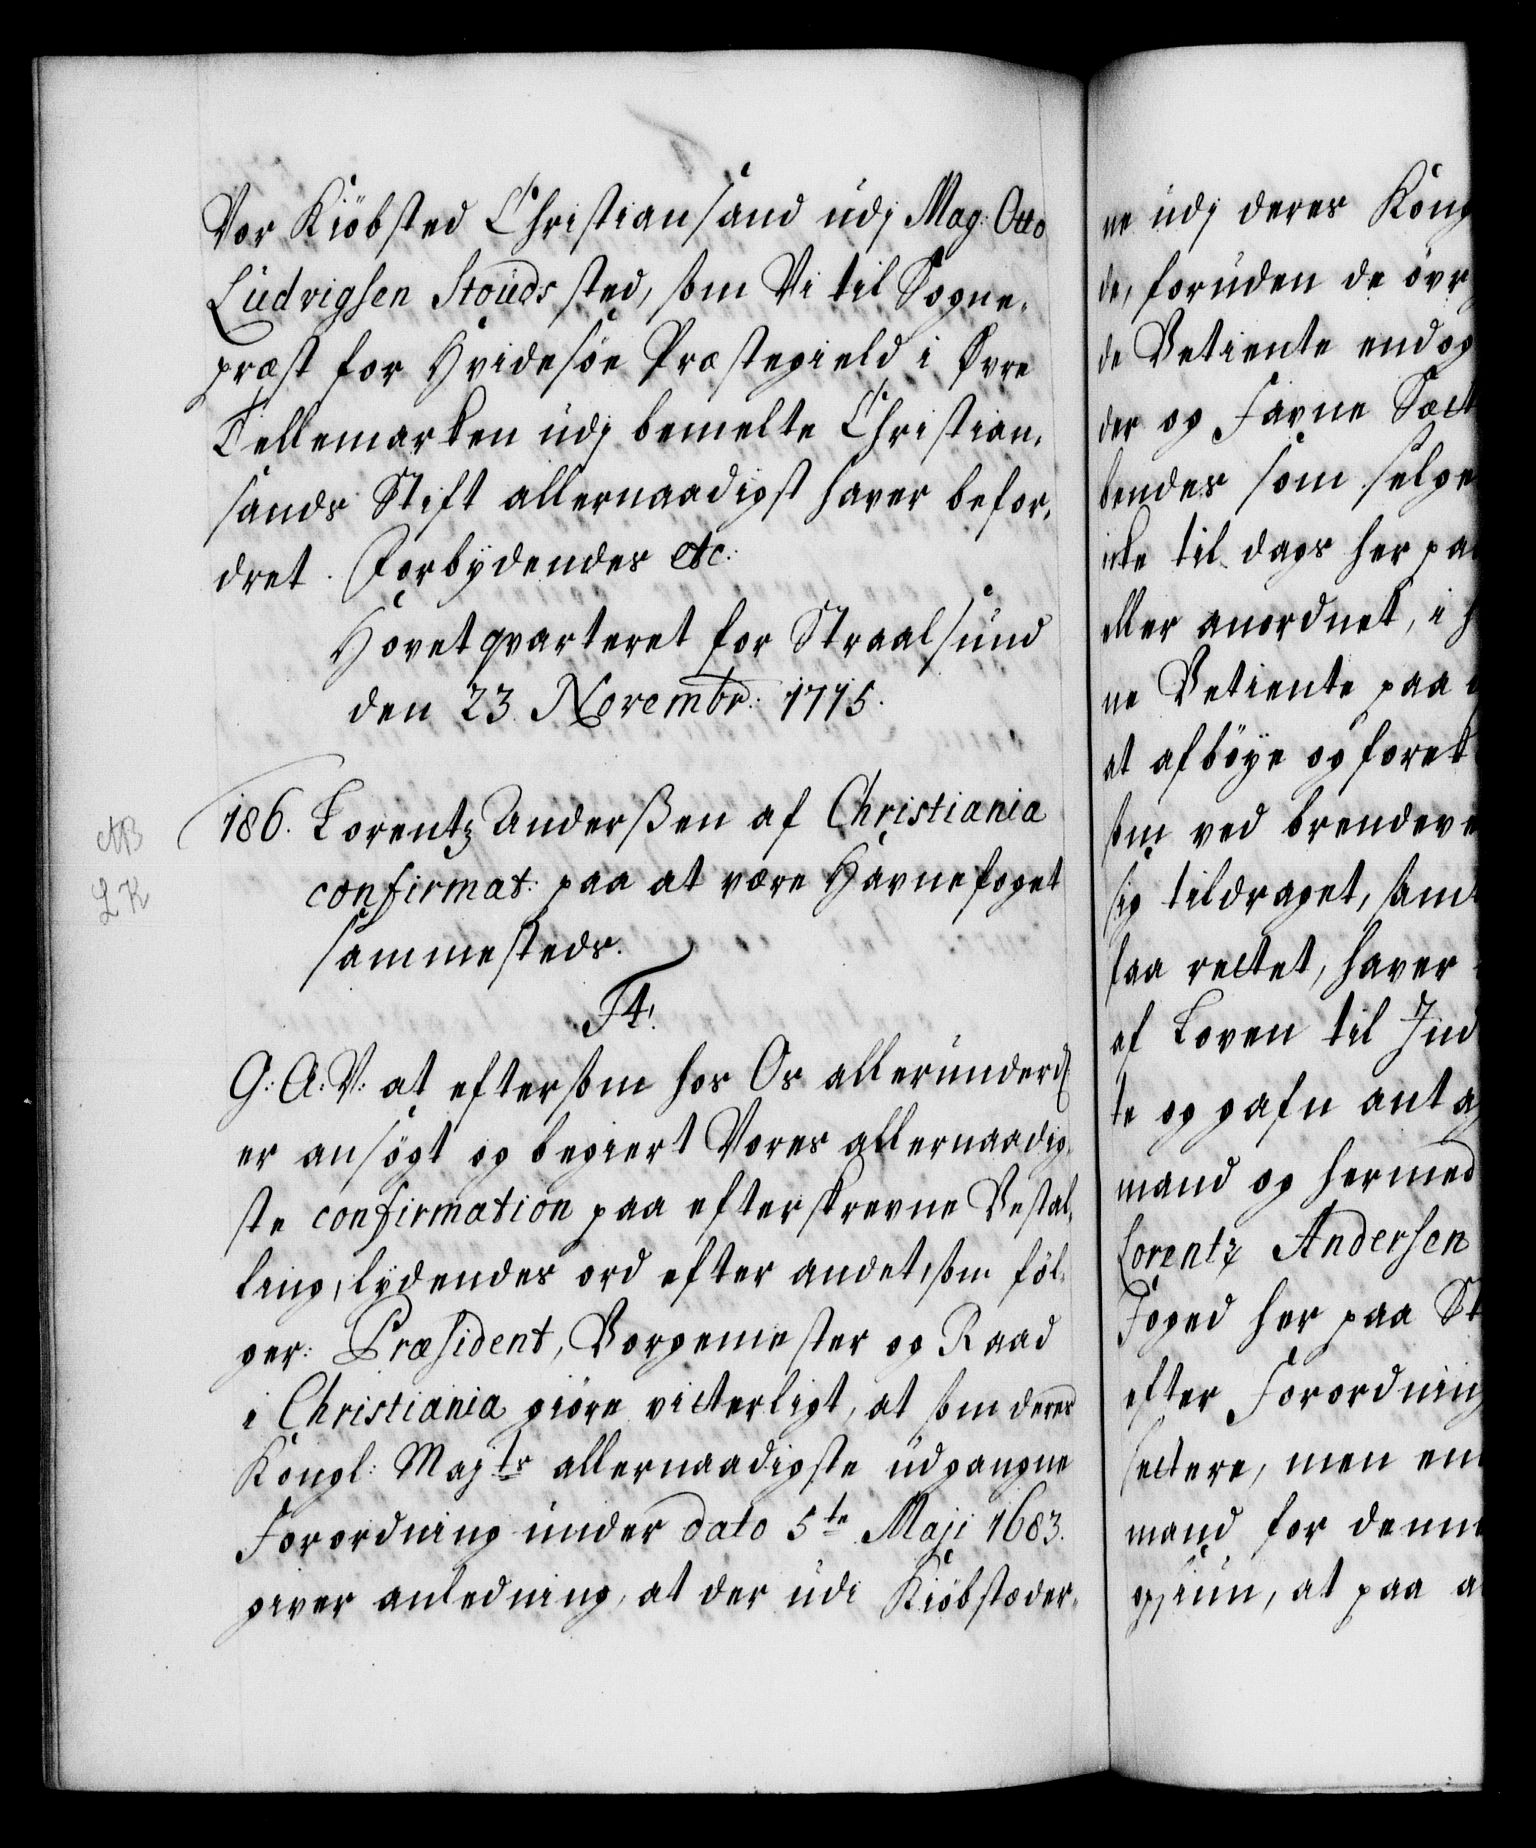 Vor Kiöbsted Christiansand udj Mag: Otto
Ludvigsen Stouds sted, som Vi til Sogne-
præst for Hvidesöe Præstegield i Øvre
Tellemarken udj bemelte Christian-
sands Stift allernaadigst haver befor-
dret. Forbydendes etc:
Hovetqvarteret for Straalsund
den 23 Novembr: 1715.
186. Lorentz Anderßen af Christiania
AB
confirmat: paa at være Havnefoget
LK
sammesteds.
F4.
G: A: V: at eftersom hos Os allerunderd
er ansögt og begiert Vores allernaadig-
ste confirmation paa efterskrevne Bestal-
ling, lydendes ord efter andet, som föl-
ger: Præsident, Borgemester og Raad
i Christiania giöre vitterligt, at som deres
Kongl: Majts allernaadigste udgangne
Forordning under dato 5te Maji 1683.
giver anledning, at der udi Kiöbstæder-
ne udj deres Kong
de, foruden de övr
de Betiente endog
der og Favne Sætt
bendes som selge
icke til dags her paa
eller anordnet, i h
ne Betiente paa
at afböye og forek
som ved brendeve
sig tildraget, samt
saa rettet, haver
af Loven til Ind
te og gafn antag
mand og hermed
Lorentz Andersen
Foged her paa St
efter Forordning
settere, men en
mand for denne
gsiun, at paa a